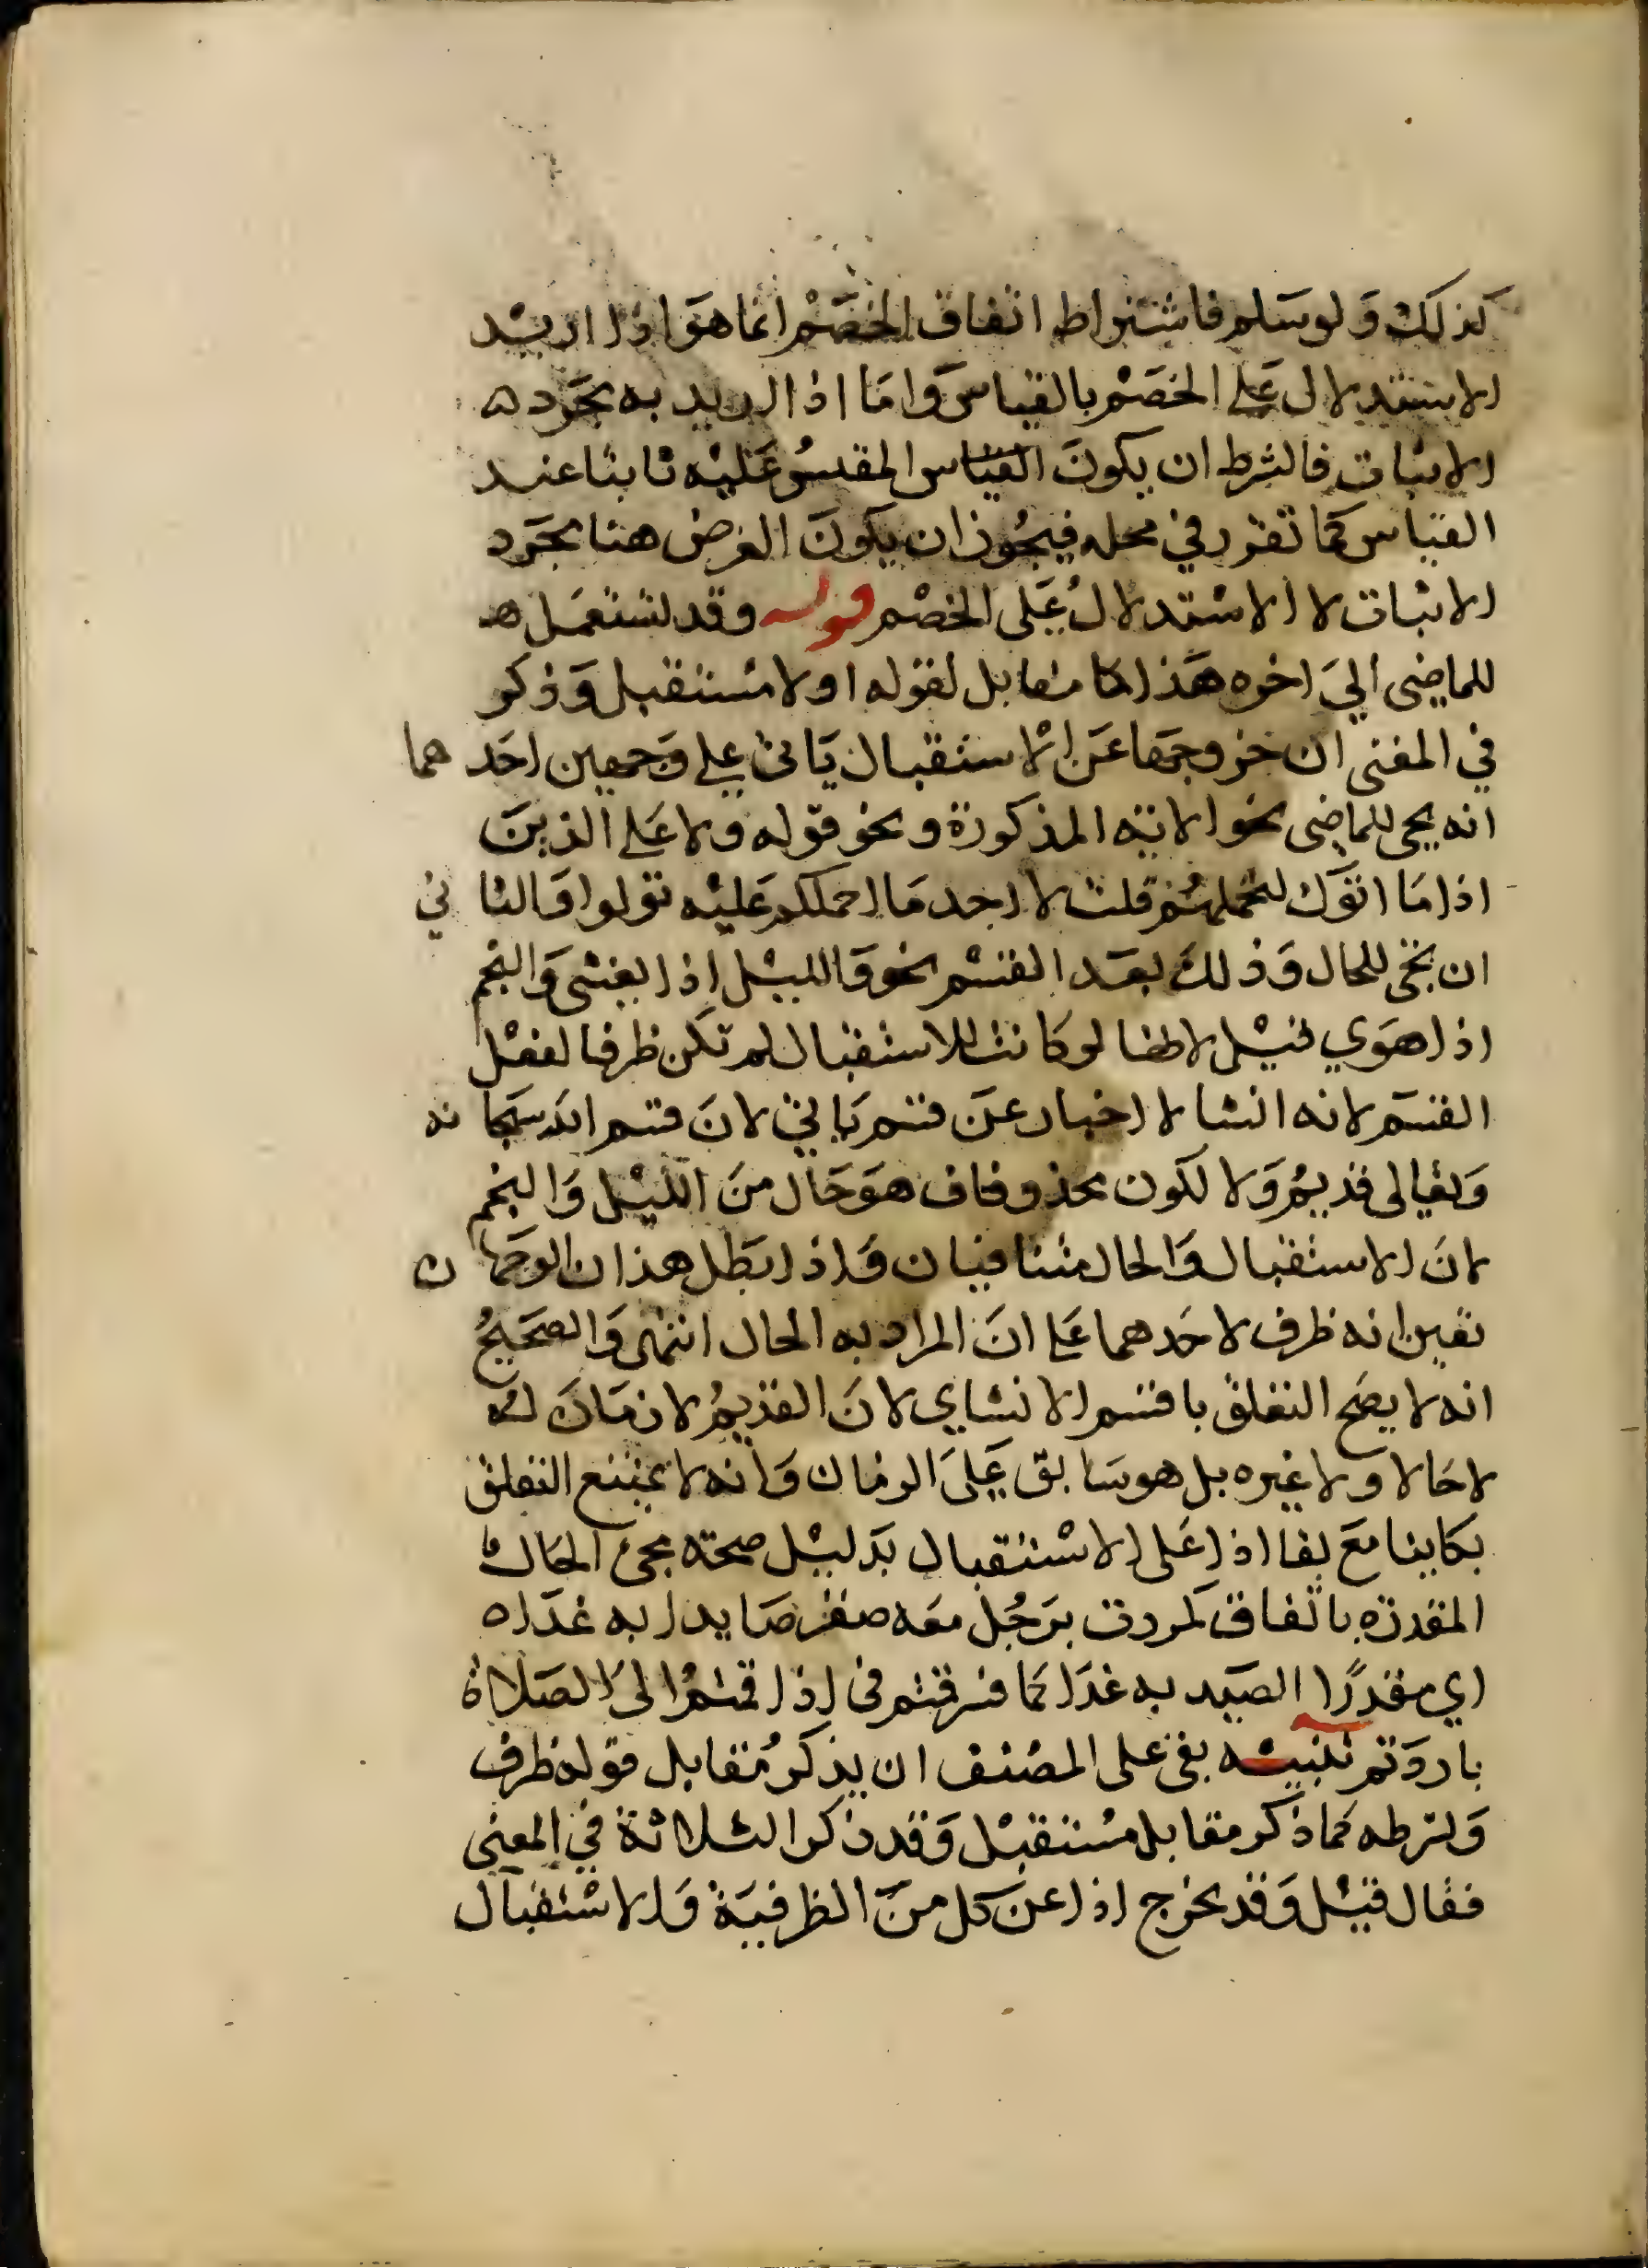 كذلك ولو سلم فاشتراط اتفاق الخصم انما هو اذا اريد
الاستدلال على الخصم بالقياس واما اذا اريد به مجرد ه
الاثبات فالشرط ان يكون القياس المقيس عليه ثابتا عند
القياس كما تقرر في محله فيجوز ان يكون الغرض هنا مجرد
الاثبات لا الاستدلال على الخصم قوله وقد تستعمل ه
للماضي الى اخره هذا كا مقابل لقوله اولا مستقبل وذكر
في المغنى ان خروجها عن الاستقبال ياتي على وجهين احد هما
انه يجي للماضي نحو الاية المذكورة ونحو قوله ولا على الذين
اذا ما اتوك لتحملهم قلت لا اجد ما احملكم عليه تولوا والثا ني
ان يجي للحال وذلك بعد القسم نحو والليل اذا يغشى والنجم
اذا هوي قيل لانها لو كانت للاستقبال لم تكن ظرفا لفعل
القسم لانه انشا لا اخبار عن قسم ياتي لان قسم الله سبحا نه
وتعالى قديم ولا لكون محذوفاف هو حال من الليل والنجم
لان الاستقبال والحال متنافيان واذا بطل هذان الوجها ن
تعين انه ظرف لاحدهما على ان المراد به الحال انتهى والصحيح
انه لا يصح التعلق باقسم الانشاي لان القديم لا زمان له
لا حالا ولا غيره بل هو سابق على الزمان وانه لا يمتنع التعلق
بكاينا مع بقا اذا على الاستقبال بدليل صحته مجئ الحال
المقدرة باتفاق كمررت برجل معه صقر صايدا به غدا ه
اي مقدرا الصيد به غدا كما فسرقتم في اذا قمتم الى الصلاة
باردتم تنبيه بقي على المصنف ان يذكر مقابل قوله ظرف
ولشرطه كما ذكر مقابل مستقبل وقد ذكر الثلاثة في المعنى
فقال قيل وقد يخرج اذا عن كل من الظرفية والاستقبال